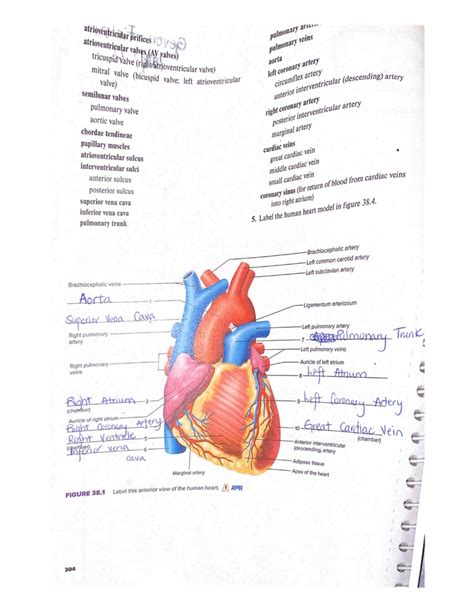 atrioventricular orifices
atrioventricular valves (AV valves)
tricuspid valve (right atrioventricular valve)
mitral valve (bicuspid valve; left atrioventricular
valve)
semilunar valves
pulmonary valve
aortic valve
chordae tendineae
papillary muscles
atrioventricular sulcus
interventricular sulci
anterior sulcus
posterior sulcus
superior vena cava
inferior vena cava
pulmonary trunk
pulmonary
pulmonary veins
aorta
left coronary artery
circumflex artery
anterior interventricular (descending) artery
right coronary artery
posterior interventricular artery
marginal artery
cardiac veins
great cardiac vein
middle cardiac vein
small cardiac vein
coronary sinus (for return of blood from cardiac veins
into right atrium)
5. Label the human heart model in figure 38.4.
Brachiocephalic artery
Left common carotid artery
Left subclavian artery
Brachiocephalic veins
Aorta 1
Superior Vena Cava
Right pulmonary
artery
Right pulmonary
veins
Right Atrium 3
(chamber)
Auricle of right atrium
Right Coronary Artery
Right Ventricle 5
(chamber)
Inferior vena 6
cava
Ligamentum arteriosum
Left pulmonary artery
7 Pulmonary Trunk
Left pulmonary veins
Auricle of left atrium
8 Left Atrium
9 Left Coronary Artery
10 Great Cardiac Vein
(chamber)
Anterior interventricular
(descending) artery
Adipose tissue
Apex of the heart
Marginal artery
FIGURE 38.1 Label this anterior view of the human heart. APR
304